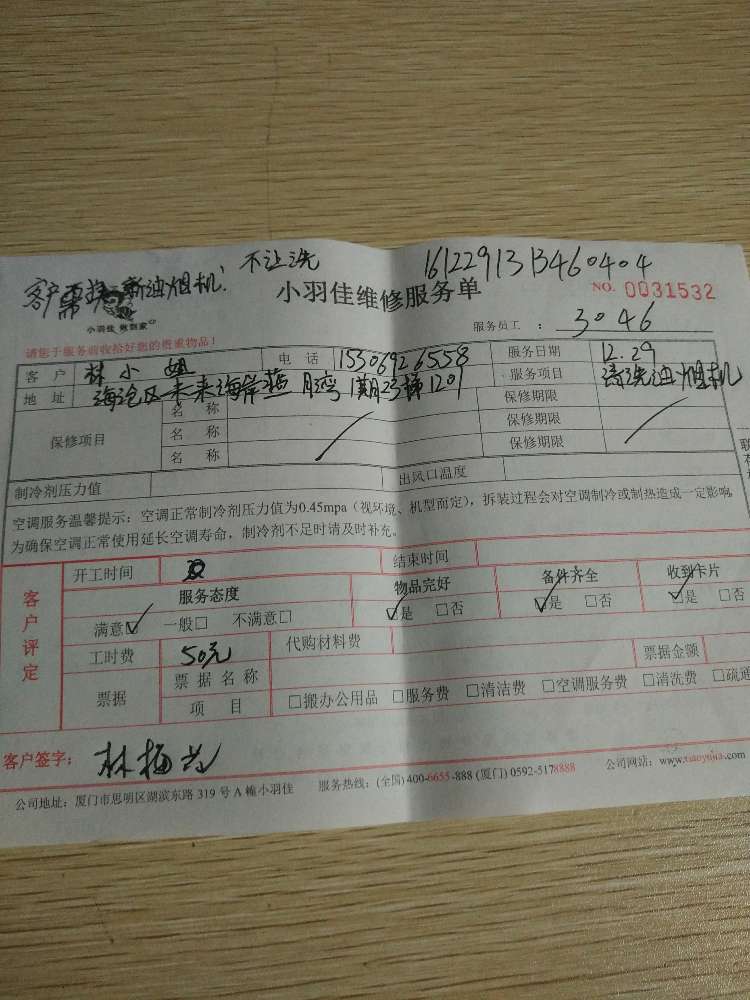 不让洗 1612291313460404
客户需换新油烟机!
小羽佳维修服务单 NO. 0031532
小羽佳 做到家
服务员工 : 3046
请您于服务前收拾好您的贵重物品!
客户 林小姐 电话 15306926558 服务日期 12.29
地址 海沧区未来海岸蓝月湾1期23梯1201 服务项目 清洗油烟机
保修项目 名称 保修期限
名称 保修期限
名称 保修期限
制冷剂压力值 出风口温度
空调服务温馨提示:空调正常制冷剂压力值为0.45mpa(视环境、机型而定),拆装过程会对空调制冷或制热造成一定影响,
为确保空调正常使用延长空调寿命,制冷剂不足时请及时补充。
客户评定
开工时间 结束时间
服务态度 物品完好 备件齐全 收到卡片
满意☑ 一般□ 不满意□ ☑是 □否 ☑是 □否 ☑是 □否
工时费 50元 代购材料费 票据金额
票据 票据名称
项目 □搬办公用品 □服务费 □清洁费 □空调服务费 □清洗费 □疏通
客户签字:林梅
公司地址:厦门市思明区湖滨东路 319 号 A 幢小羽佳 服务热线:(全国) 400-6655-888 (厦门) 0592-5178888 公司网站:www.xiaoyujia.com